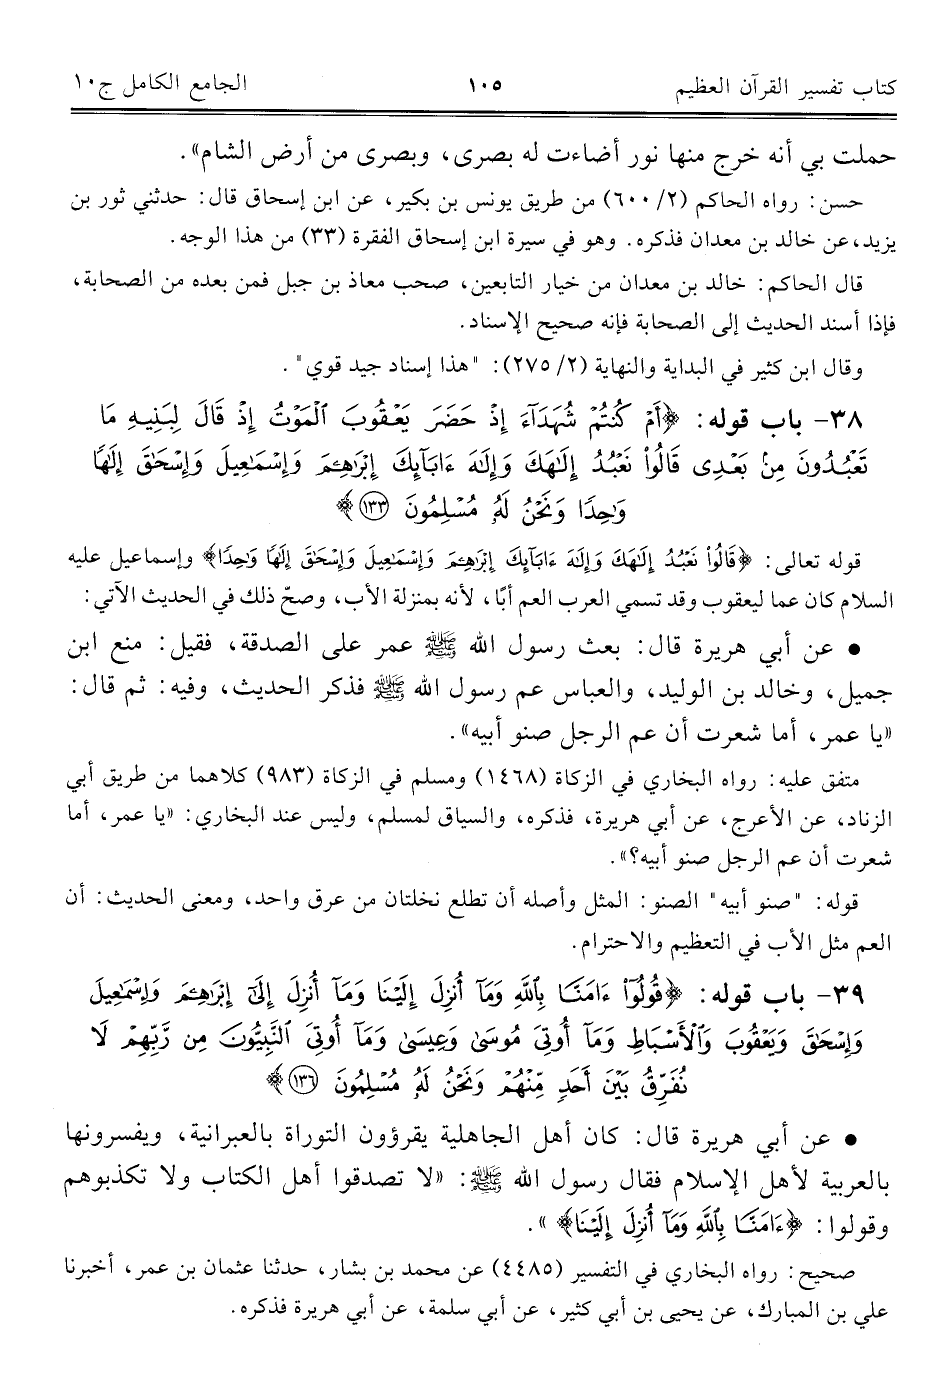 كتاب تفسير القرآن العظيم ١٠٥ الجامع الكامل ج١٠
حملت بي أنه خرج منها نور أضاءت له بصرى، وبصرى من أرض الشام».
حسن: رواه الحاكم (٢/ ٦٠٠) من طريق يونس بن بكير، عن ابن إسحاق قال: حدثني ثور بن
يزيد،عن خالد بن معدان فذكره. وهو في سيرة ابن إسحاق الفقرة (٣٣) من هذا الوجه.
قال الحاكم: خالد بن معدان من خيار التابعين، صحب معاذ بن جبل فمن بعده من الصحابة،
فإذا أسند الحديث إلى الصحابة فإنه صحيح الإسناد.
وقال ابن كثير في البداية والنهاية (٢/ ٢٧٥): "هذا إسناد جيد قوي".
٣٨- باب قوله: ﴿أَمْ كُنتُمْ شُهَدَآءَ إِذْ حَضَرَ يَعْقُوبَ ٱلْمَوْتُ إِذْ قَالَ لِبَنِيهِ مَا
تَعْبُدُونَ مِنۢ بَعْدِى قَالُوا۟ نَعْبُدُ إِلَٰهَكَ وَإِلَٰهَ ءَابَآئِكَ إِبْرَٰهِـۧمَ وَإِسْمَٰعِيلَ وَإِسْحَٰقَ إِلَٰهًا
وَٰحِدًا وَنَحْنُ لَهُۥ مُسْلِمُونَ ١٣٣﴾
قوله تعالى: ﴿قَالُوا۟ نَعْبُدُ إِلَٰهَكَ وَإِلَٰهَ ءَابَآئِكَ إِبْرَٰهِـۧمَ وَإِسْمَٰعِيلَ وَإِسْحَٰقَ إِلَٰهًا وَٰحِدًا﴾ وإسماعيل عليه
السلام كان عما ليعقوب وقد تسمي العرب العم أبًا، لأنه بمنزلة الأب، وصحّ ذلك في الحديث الآتي:
• عن أبي هريرة قال: بعث رسول الله ﷺ عمر على الصدقة، فقيل: منع ابن
جميل، وخالد بن الوليد، والعباس عم رسول الله ﷺ فذكر الحديث، وفيه: ثم قال:
«يا عمر، أما شعرت أن عم الرجل صنو أبيه».
متفق عليه: رواه البخاري في الزكاة (١٤٦٨) ومسلم في الزكاة (٩٨٣) كلاهما من طريق أبي
الزناد، عن الأعرج، عن أبي هريرة، فذكره، والسياق لمسلم، وليس عند البخاري: «يا عمر، أما
شعرت أن عم الرجل صنو أبيه؟».
قوله: "صنو أبيه" الصنو: المثل وأصله أن تطلع نخلتان من عرق واحد، ومعنى الحديث: أن
العم مثل الأب في التعظيم والاحترام.
٣٩- باب قوله: ﴿قُولُوٓا۟ ءَامَنَّا بِٱللَّهِ وَمَآ أُنزِلَ إِلَيْنَا وَمَآ أُنزِلَ إِلَىٰٓ إِبْرَٰهِـۧمَ وَإِسْمَٰعِيلَ
وَإِسْحَٰقَ وَيَعْقُوبَ وَٱلْأَسْبَاطِ وَمَآ أُوتِىَ مُوسَىٰ وَعِيسَىٰ وَمَآ أُوتِىَ ٱلنَّبِيُّونَ مِن رَّبِّهِمْ لَا
نُفَرِّقُ بَيْنَ أَحَدٍ مِّنْهُمْ وَنَحْنُ لَهُۥ مُسْلِمُونَ ١٣٦﴾
• عن أبي هريرة قال: كان أهل الجاهلية يقرؤون التوراة بالعبرانية، ويفسرونها
بالعربية لأهل الإسلام فقال رسول الله ﷺ: «لا تصدقوا أهل الكتاب ولا تكذبوهم
وقولوا: ﴿ءَامَنَّا بِٱللَّهِ وَمَآ أُنزِلَ إِلَيْنَا﴾».
صحيح: رواه البخاري في التفسير (٤٤٨٥) عن محمد بن بشار، حدثنا عثمان بن عمر، أخبرنا
علي بن المبارك، عن يحيى بن أبي كثير، عن أبي سلمة، عن أبي هريرة فذكره.